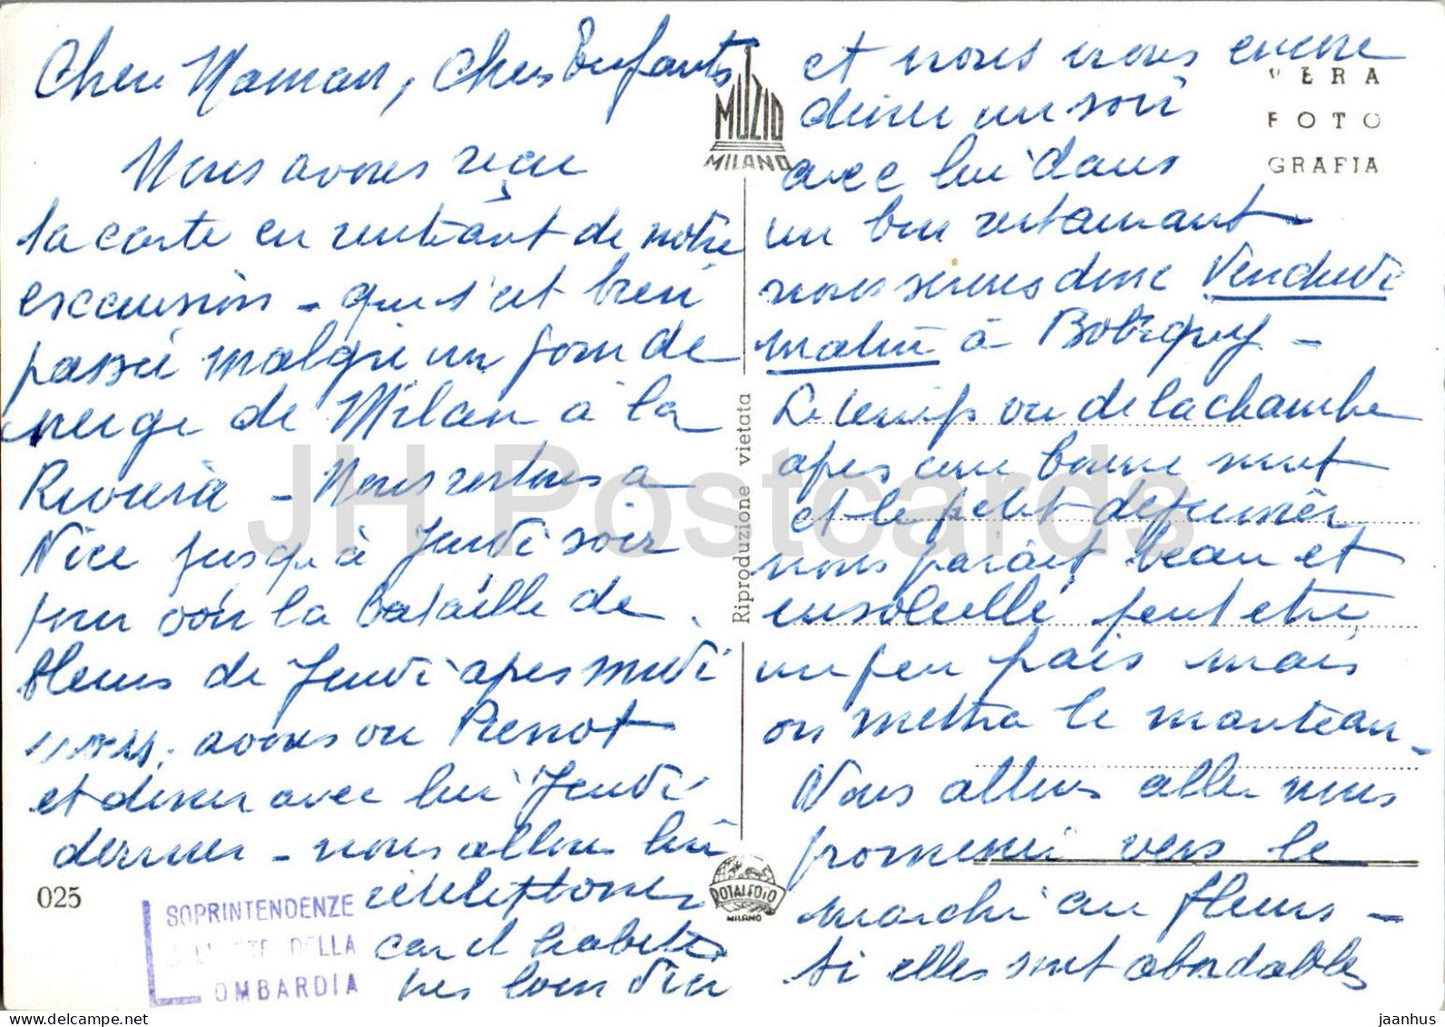 Chere Maman, Chers Enfants
Nous avons reçu
la carte en rentrant de notre
excursion - qui s'est bien
passée malgre un fond de
neige de Milan à la
Riviera - Nous restons a
Nice jusqu'à Jeudi soir
pour voir la bataille de
fleurs de Jeudi apres midi
avons vu Pierrot
et diner avec lui Jeudi
dernier - nous allons lui
retelephoner
car il habite
tres loin d'ici
et nous irons encore
diner un soir
avec lui dans
un bon restaurant -
nous serons donc Vendredi
matin à Bobigny -
Le temps vu de la chambre
apres une bonne nuit
et le petit dejeuner
nous parait beau et
ensoleillé peut etre
un peu frais mais
on mettra le manteau -
Nous allons aller nous
promener vers le
marché au fleurs -
si elles sont abordables
MUZIO
MILANO
VERA
FOTO
GRAFIA
Riproduzione vietata
ROTALFOTO
MILANO
025
SOPRINTENDENZE
DELLA
LOMBARDIA
JH Postcards
jaanhus
hipstamp.com